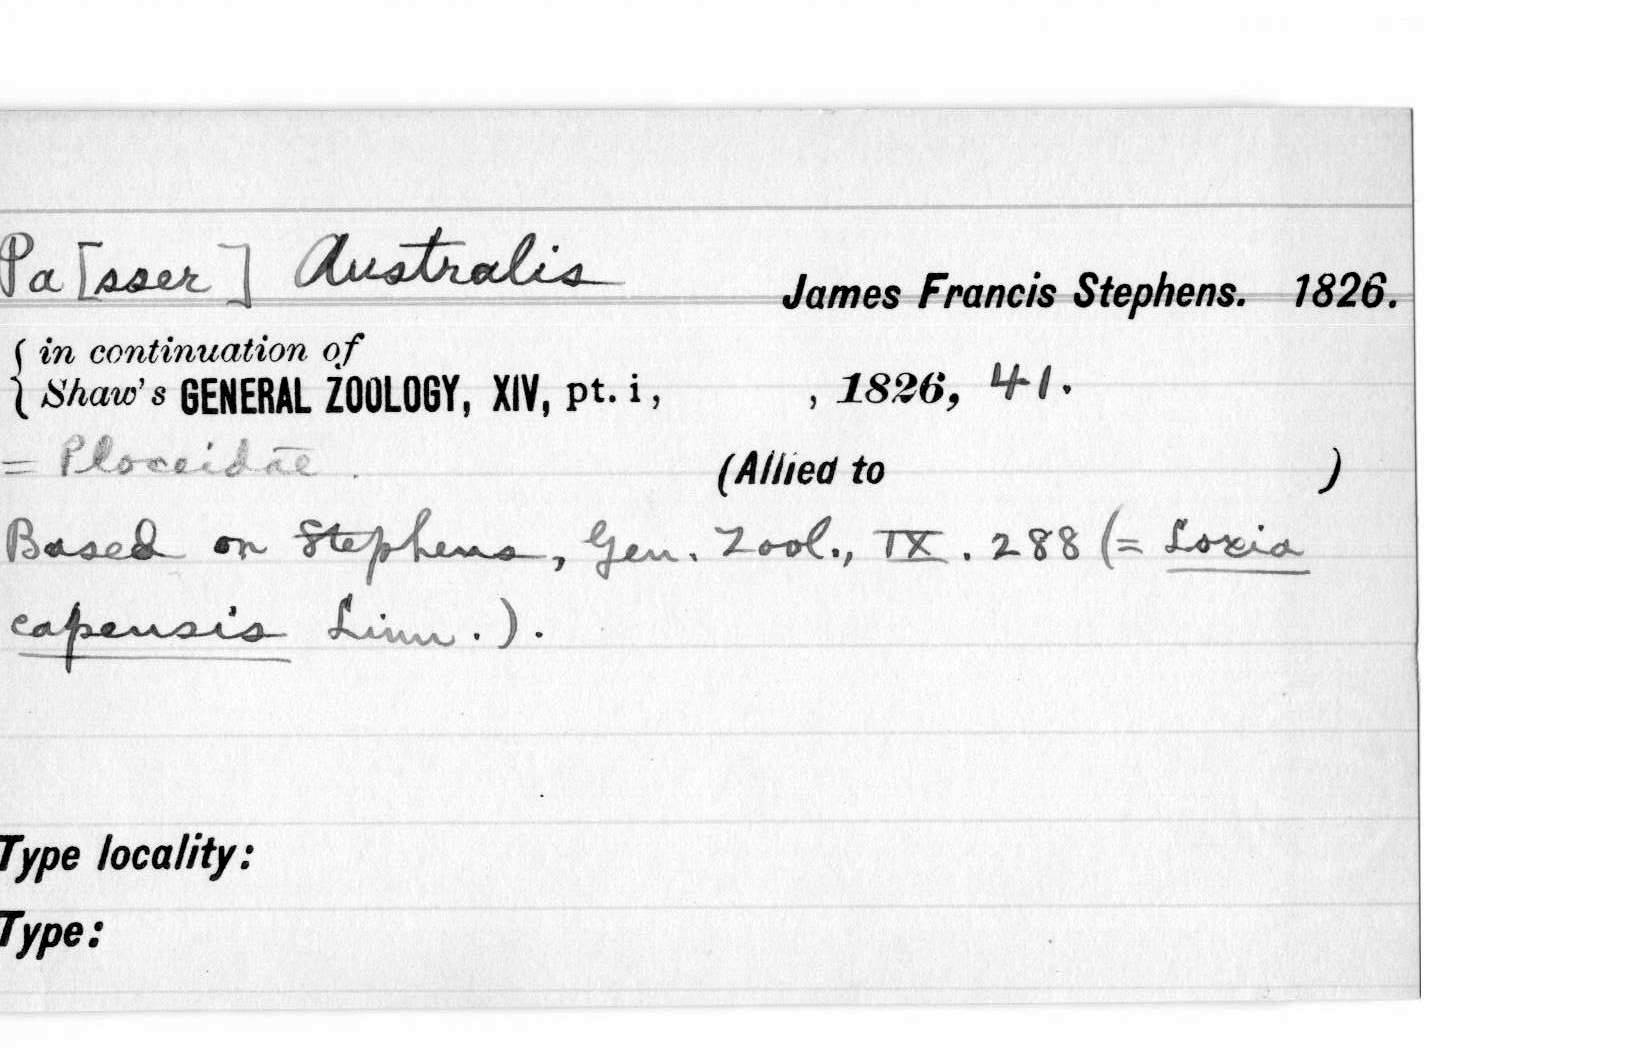 Pa[sser] Australis James Francis Stephens. 1826.
in continuation of
Shaw's GENERAL ZOOLOGY, XIV, pt. i, , 1826, 41.
= Ploceidae. (Allied to )
Based on Stephens, Gen. Zool., IX. 288 (= Loxia
capensis Linn.).
Type locality:
Type: